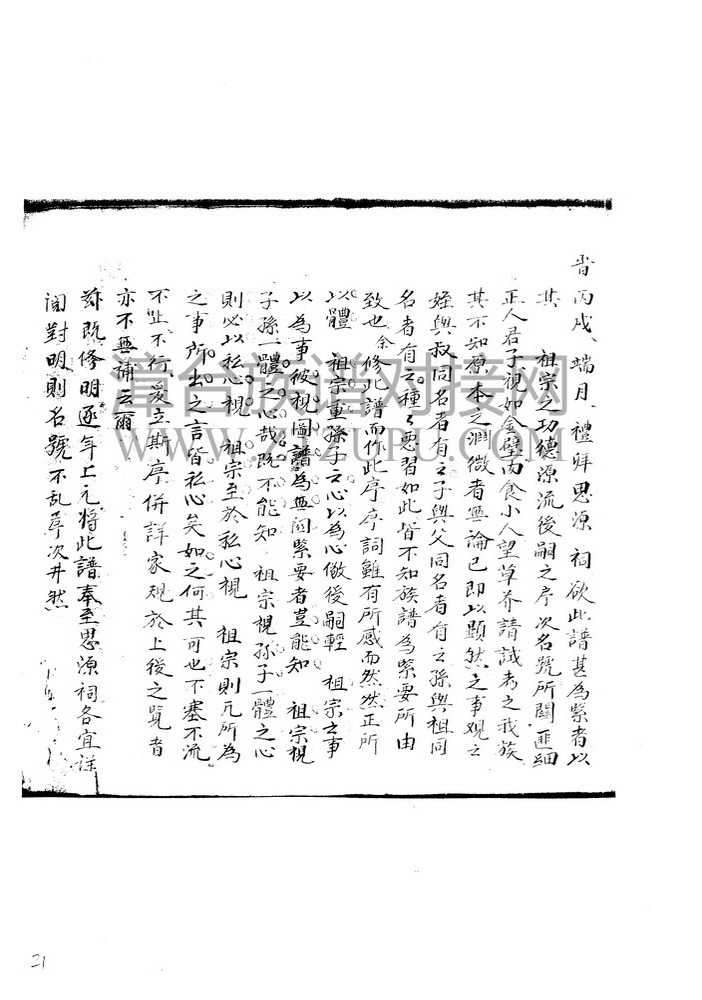 旹丙戌端月禮拜思源 祠欲此譜甚為緊者以
其 祖宗之功德源流後嗣之序次名號所關匪細
正人君子視如金璧肉食小人望草芥請試考之我族
其不知原本之淵微者無論已即以顯然之事观之
姪與叔同名者有之子與父同名者有之孫與祖同
名者有之種々悪習如此皆不知族譜為緊要所由
致也余修此譜而作此序序詞雖有所感而然然正所
以體 祖宗重孫子之心以為心儆後嗣輕 祖宗之事
以為事彼視圖譜為無関緊要者豈能知 祖宗視
子孫一體之心哉既不能知 祖宗視孫子一體之心
則必以私心視 祖宗至於私心視 祖宗則凡所為
之事所出之言皆私心矣如之何其可也不塞不流
不止不行爰立斯序併詳家規於上後之覧者
亦不無補云爾
茲既修明逐年上元將此譜奉至思源祠各宜详
閲對明則名號不乱荨次井然
章台族谱对接网
WWW.ZTZUPU.COM
21